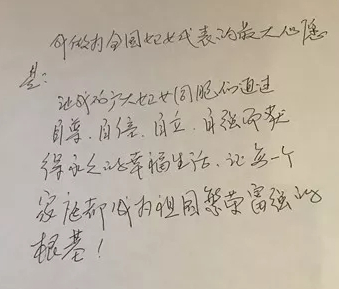 我做为全国妇女代表的最大心愿
是：
让我的广大妇女同胞们通过
自尊、自信、自立、自强而获
得永久的幸福生活、让每一个
家庭都成为祖国繁荣富强的
根基！